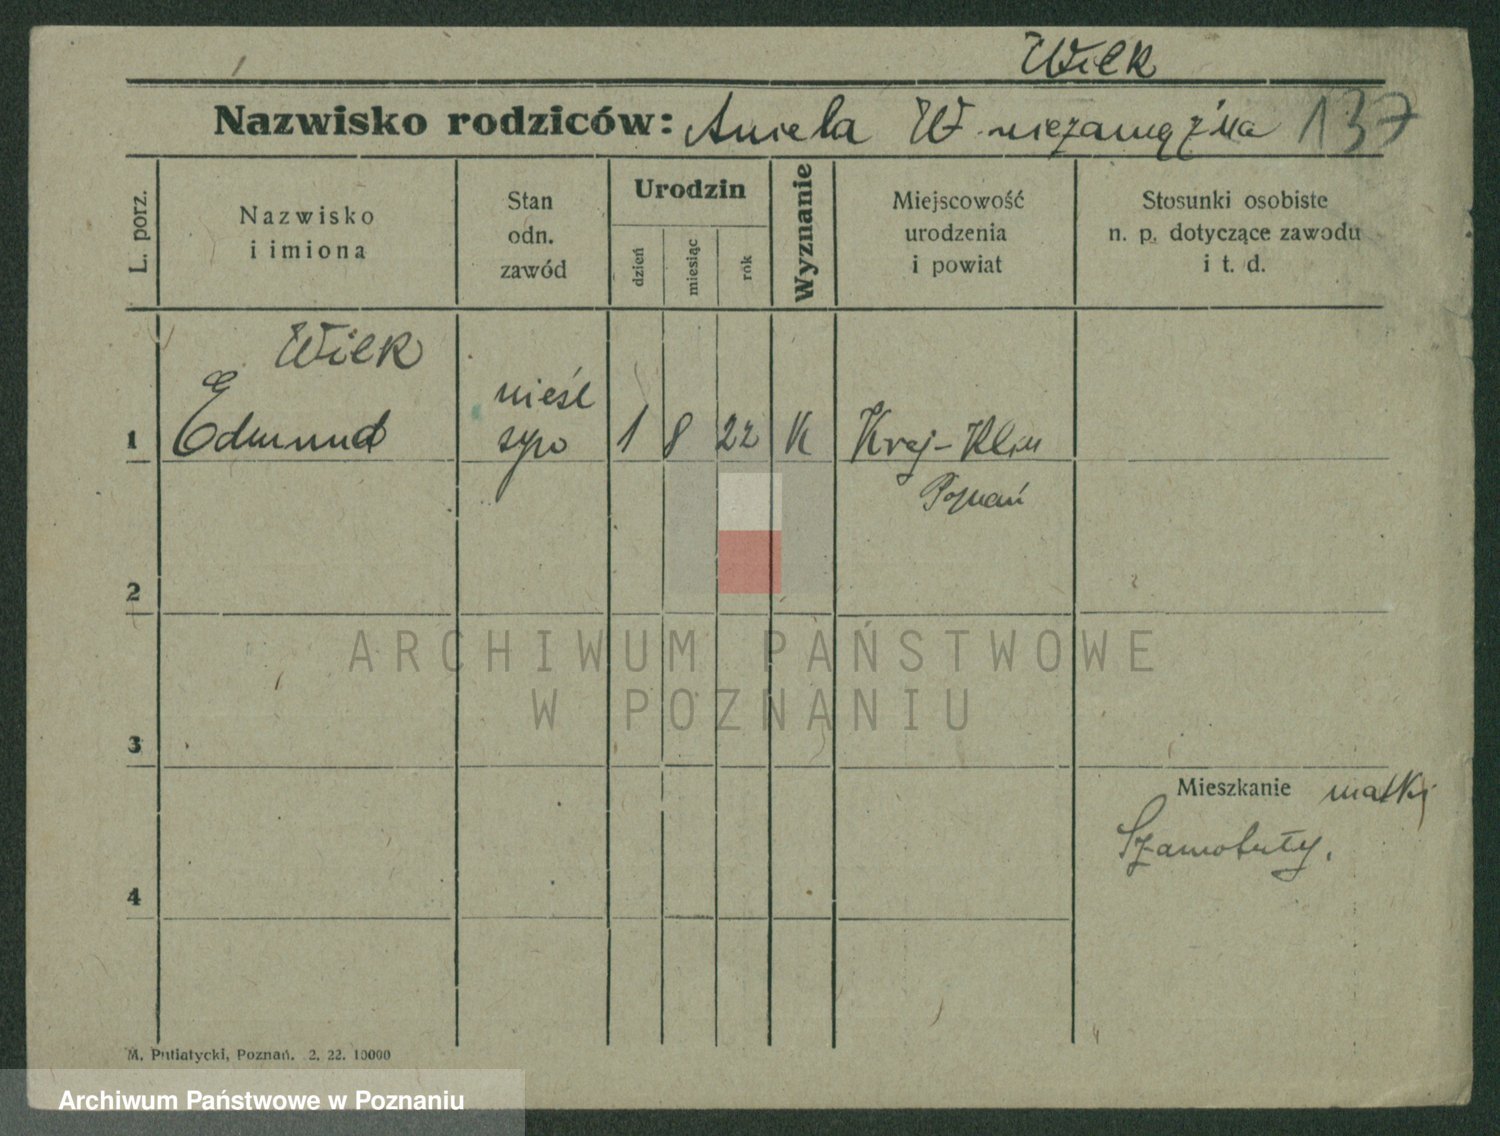 Wilk
Nazwisko rodziców: Aniela W. niezamężna 137
L. porz.
Nazwisko
i imiona
Stan
odn.
zawód
Urodzin
dzień
miesiąc
rók
Wyznanie
Miejscowość
urodzenia
i powiat
Stosunki osobiste
n. p. dotyczące zawodu
i t. d.
Wilk
1 Edmund
nieśl
syn
1 8 22 K
Kraj-Klin
Poznań
2
3
4
Mieszkanie matki
Szamotuły.
M. Putiatycki, Poznań. 2. 22. 10000
ARCHIWUM PAŃSTWOWE
W POZNANIU
Archiwum Państwowe w Poznaniu